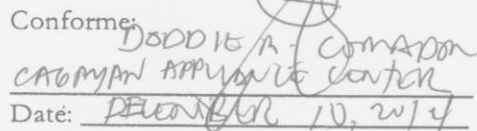 Conforme:
DODDIE R. COMADON
CAGAYAN APPLIANCE CENTER
Date: DECEMBER 10, 2014